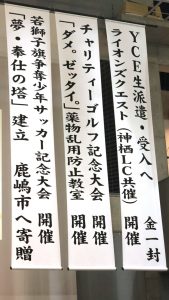 YCE生派遣・受入へ 金一封
ライオンズクエスト(神栖LC共催) 開催
チャリティーゴルフ記念大会 開催
「ダメ。ゼッタイ。」薬物乱用防止教室 開催
若獅子旗争奪少年サッカー記念大会 開催
「夢・奉仕の塔」建立 鹿嶋市へ寄贈